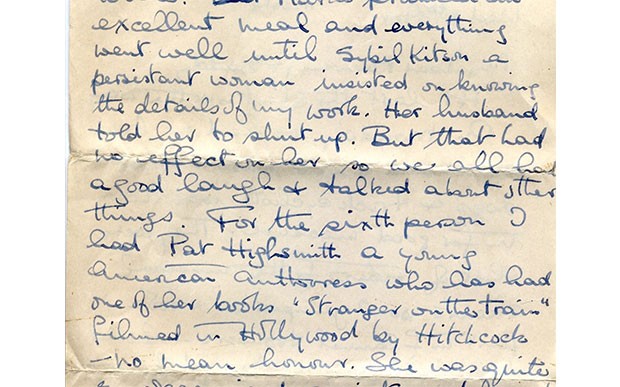 excellent meal and everything
went well until Sybil Kitson a
persistant woman insisted on knowing
the details of my work. Her husband
told her to shut up. But that had
no effect on her so we all had
a good laugh & talked about other
things. For the sixth person I
had Pat Highsmith a young
American Authoress who has had
one of her books "Stranger on the Train"
filmed in Hollywood by Hitchcock
– no mean honour. She was quite